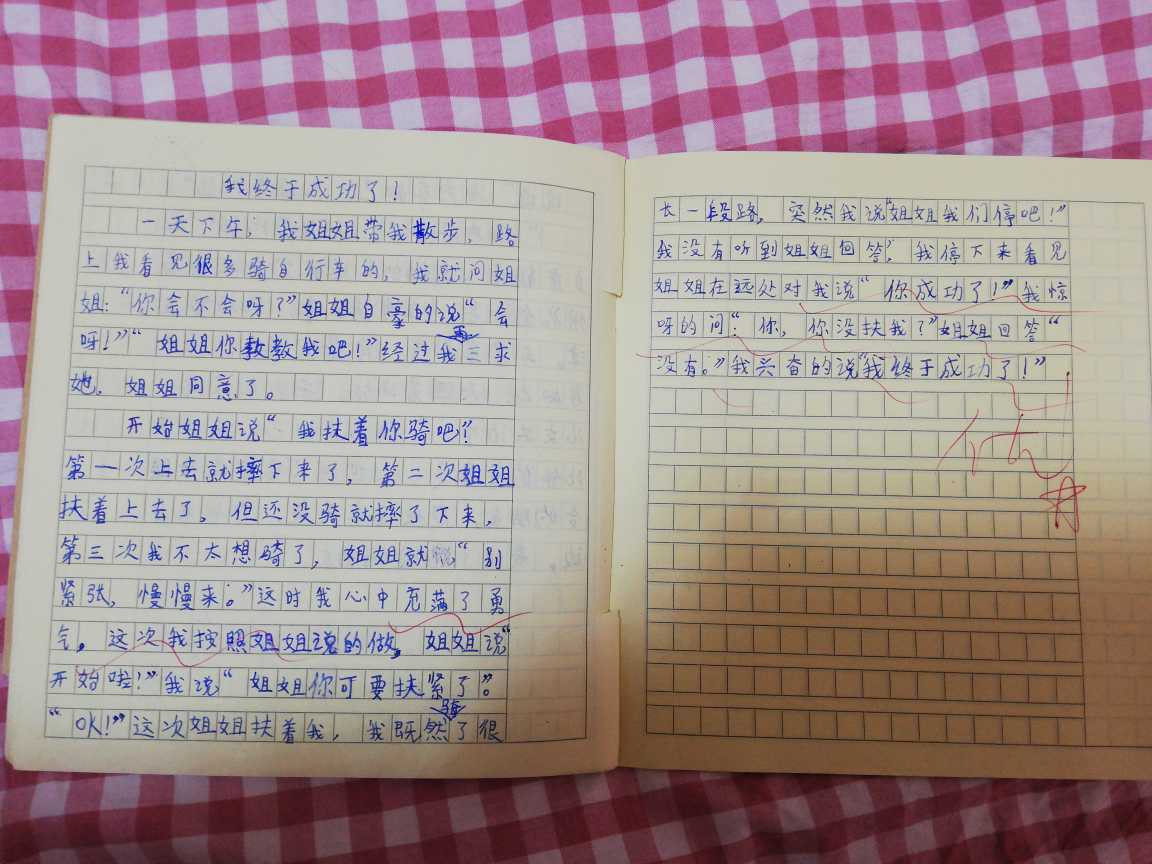 我终于成功了!
一天下午,我姐姐带我散步,路
上我看见很多骑自行车的,我就问姐
姐:“你会不会呀?”姐姐自豪的说“会
呀!”“姐姐你教教我吧!”经过我再三求
她,姐姐同意了。
开始姐姐说“我扶着你骑吧?”
第一次上去就摔下来了,第二次姐姐
扶着上去了,但还没骑就摔了下来,
第三次我不太想骑了,姐姐就说“别
紧张,慢慢来。”这时我心中充满了勇
气。这次我按照姐姐说的做,姐姐说“
开始啦!”我说“姐姐你可要扶紧了”。
“OK!”这次姐姐扶着我,我既然骑了很
长一段路,突然我说“姐姐我们停吧!”
我没有听到姐姐回答,我停下来看见
姐姐在远处对我说“你成功了!”我惊
呀的问“你,你没扶我?”姐姐回答“
没有。”我兴奋的说“我终于成功了!”
优